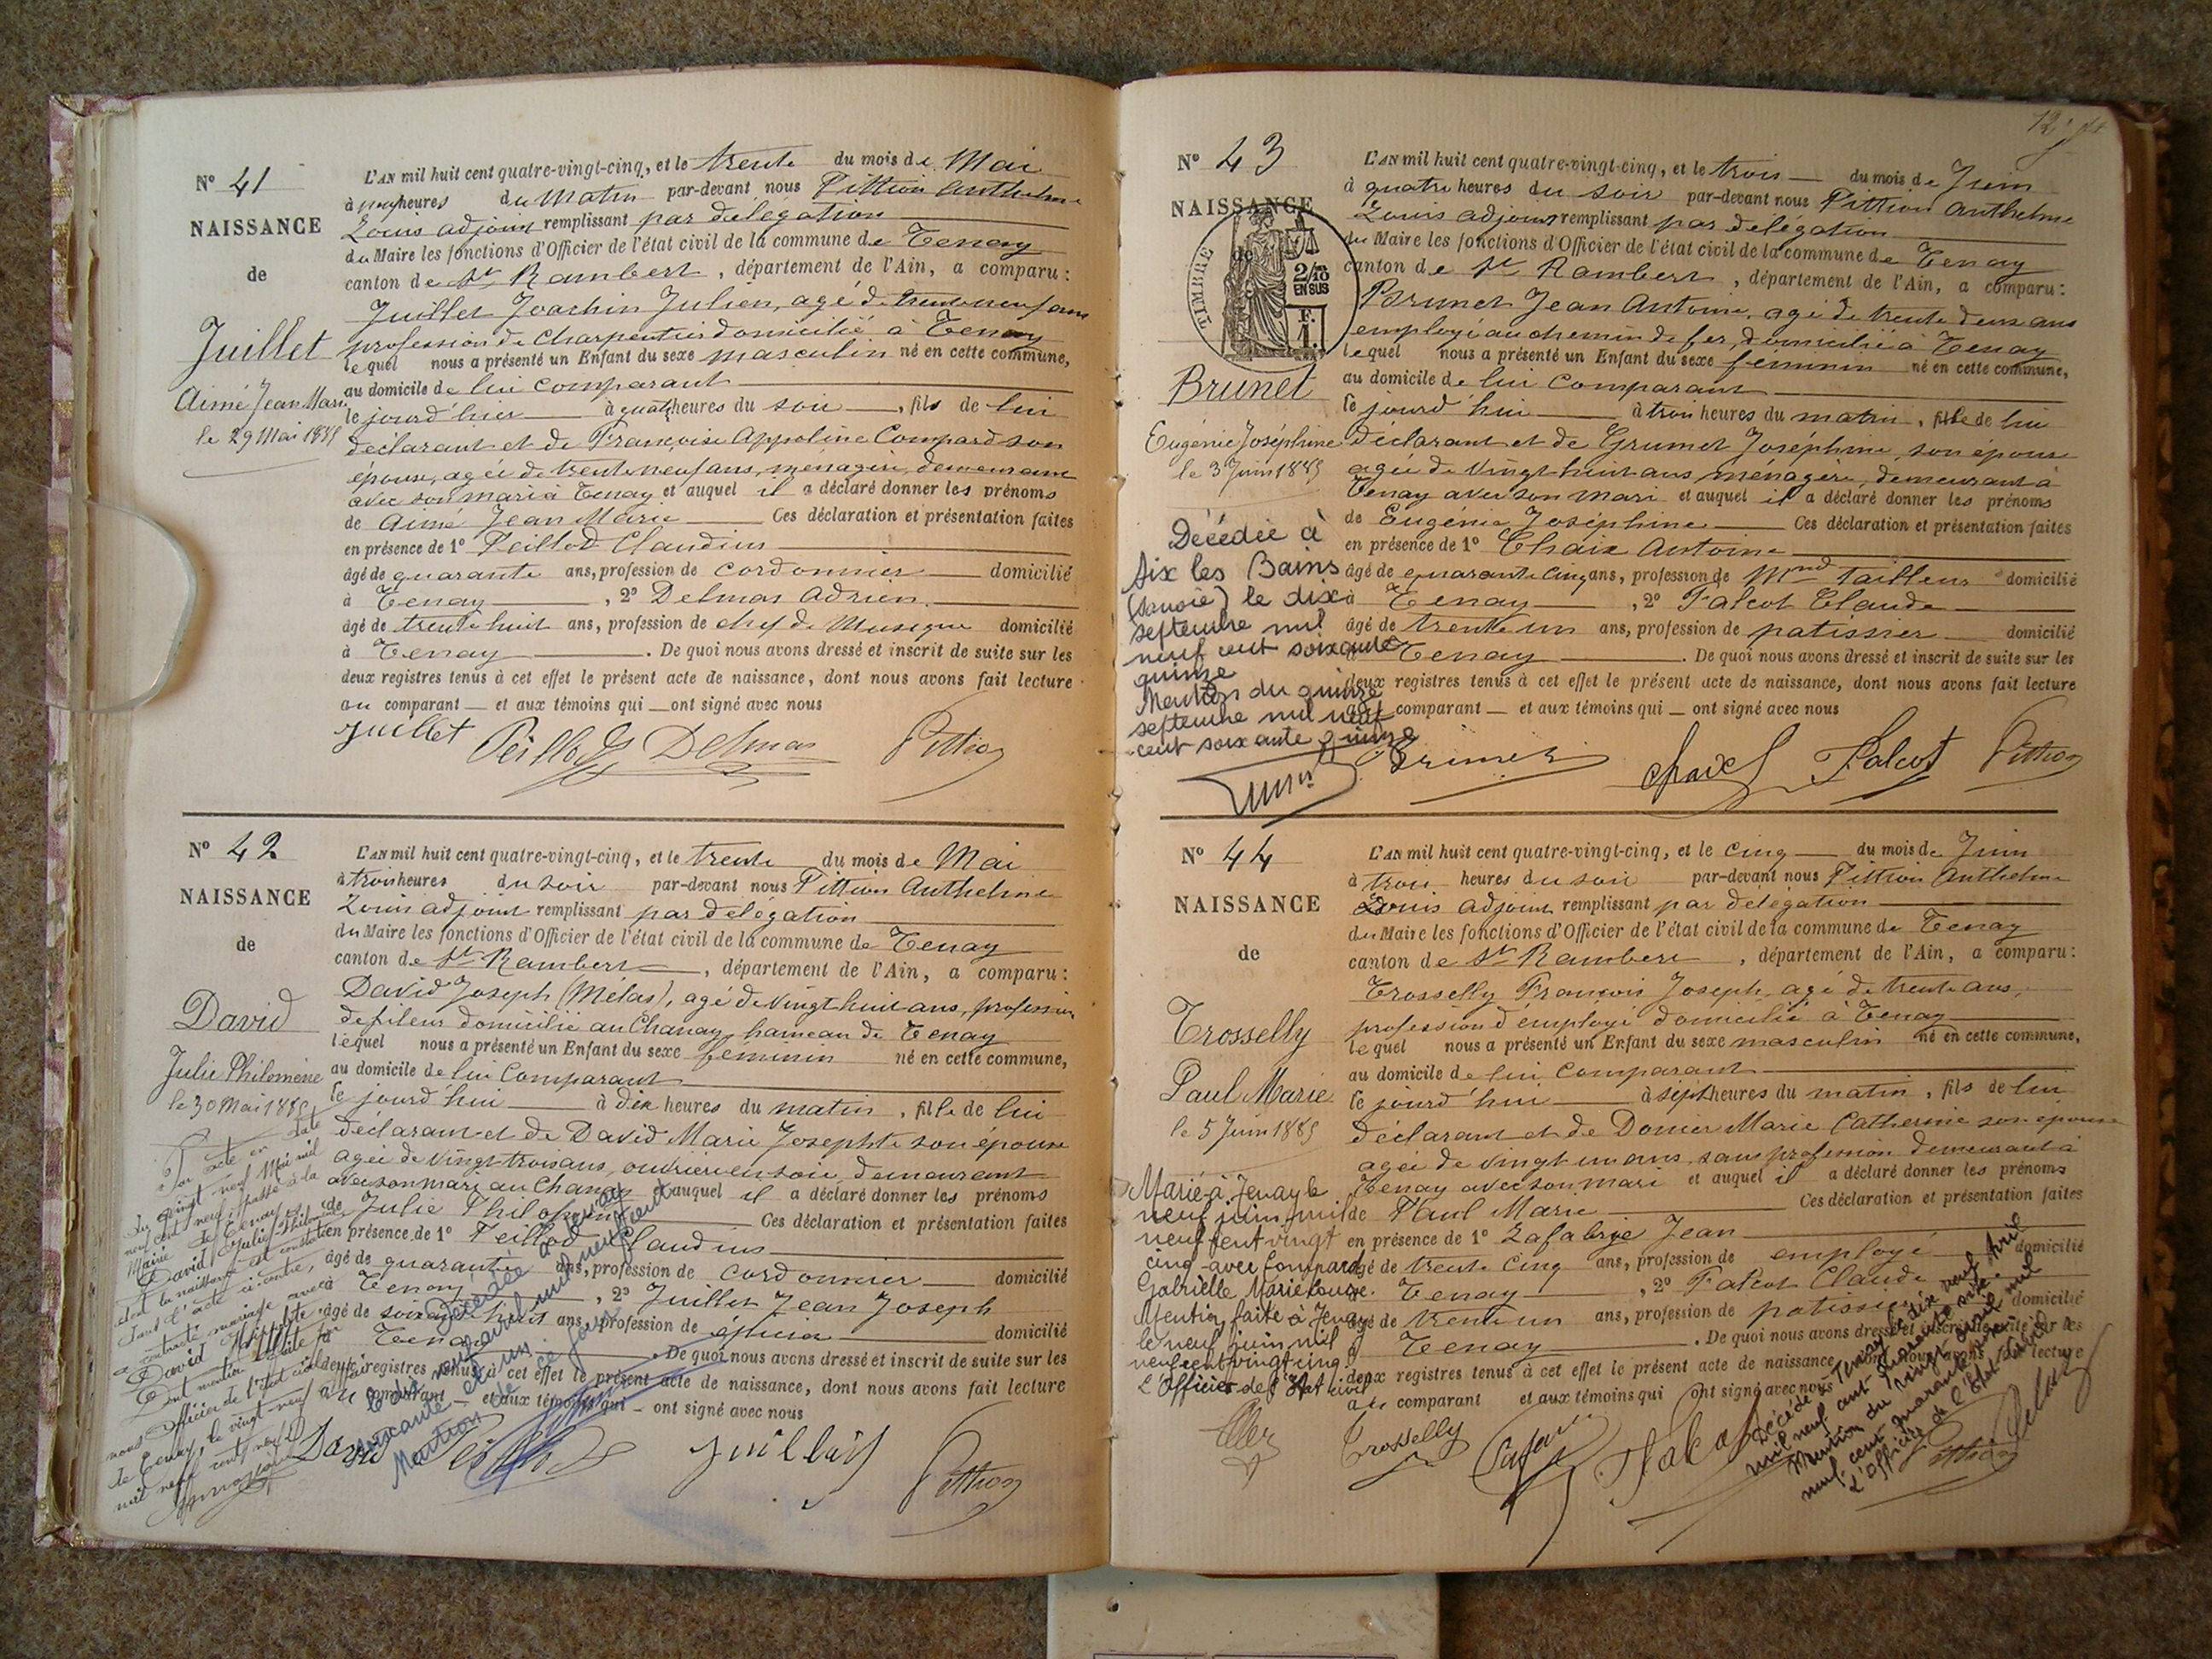 N° 41
NAISSANCE
de
Juillet
Aimé Jean Marie
le 29 Mai 1885
L'AN mil huit cent quatre-vingt-cinq, et le trente du mois de Mai
à neuf heures du matin par-devant nous Pittion Anthelme
Louis adjoint remplissant par délégation
du Maire les fonctions d'Officier de l'état civil de la commune de Tenay
canton de St Rambert, département de l'Ain, a comparu :
Juillet Joachin Julien, agé de trente neuf ans
profession de charpentier domicilié à Tenay
lequel nous a présenté un Enfant du sexe masculin né en cette commune,
au domicile de lui comparant
le jourd'hier à quatre heures du soir, fils de lui
déclarant et de Françoise Appoline Compard son
épouse, agée de trente neuf ans, ménagère, demeurant
avec son mari à Tenay et auquel il a déclaré donner les prénoms
de Aimé Jean Marie Ces déclaration et présentation faites
en présence de 1° Peillod Claudius
âgé de quarante ans, profession de cordonnier domicilié
à Tenay, 2° Delmas Adrien
âgé de trente huit ans, profession de chef de Musique domicilié
à Tenay. De quoi nous avons dressé et inscrit de suite sur les
deux registres tenus à cet effet le présent acte de naissance, dont nous avons fait lecture
au comparant et aux témoins qui ont signé avec nous
Juillet Peillod Delmas Pittion
N° 42
NAISSANCE
de
David
Julie Philomène
le 30 Mai 1885
L'AN mil huit cent quatre-vingt-cinq, et le trente du mois de Mai
à trois heures du soir par-devant nous Pittion Anthelme
Louis adjoint remplissant par délégation
du Maire les fonctions d'Officier de l'état civil de la commune de Tenay
canton de St Rambert, département de l'Ain, a comparu :
David Joseph (Mélas), agé de vingt huit ans, profession
de fileur domicilié au Chanay, hameau de Tenay
lequel nous a présenté un Enfant du sexe féminin né en cette commune,
au domicile de lui comparant
le jourd'hui à dix heures du matin, fille de lui
déclarant et de David Marie Josephte son épouse
agée de vingt trois ans, ouvrière en soie, demeurant
avec son mari au Chanay et auquel il a déclaré donner les prénoms
de Julie Philomène Ces déclaration et présentation faites
en présence de 1° Peillod Claudius
âgé de quarante ans, profession de cordonnier domicilié
à Tenay, 2° Juillet Jean Joseph
âgé de soixante huit ans, profession de épicier domicilié
à Tenay. De quoi nous avons dressé et inscrit de suite sur les
deux registres tenus à cet effet le présent acte de naissance, dont nous avons fait lecture
au comparant et aux témoins qui ont signé avec nous
David Peillod Juillet Pittion
Par acte en date
du vingt neuf Mai mil
neuf cent neuf, passé à la
Mairie de Tenay
David Julie Philomène
dont la naissance est constatée
dans l'acte ci-contre,
a contracté mariage avec
David Hippolyte
Dont mention faite par
nous officier de l'état civil
de Tenay, le vingt neuf Mai
mil neuf cent neuf
Décédée à Tenay
le dix neuf avril mil neuf cent
soixante et un
Mention de ce jour
N° 43
NAISSANCE
de
TIMBRE
2/10 EN SUS
F. 1.
Brunet
Eugénie Joséphine
le 3 Juin 1885
L'AN mil huit cent quatre-vingt-cinq, et le trois du mois de Juin
à quatre heures du soir par-devant nous Pittion Anthelme
Louis adjoint remplissant par délégation
du Maire les fonctions d'Officier de l'état civil de la commune de Tenay
canton de St Rambert, département de l'Ain, a comparu :
Brunet Jean Antoine, agé de trente deux ans
employé au chemin de fer, domicilié à Tenay
lequel nous a présenté un Enfant du sexe féminin né en cette commune,
au domicile de lui comparant
le jourd'hui à trois heures du matin, fille de lui
déclarant et de Grumet Joséphine, son épouse
agée de vingt huit ans ménagère, demeurant à
Tenay avec son mari et auquel il a déclaré donner les prénoms
de Eugénie Joséphine Ces déclaration et présentation faites
en présence de 1° Chaix Antoine
âgé de quarante cinq ans, profession de Mnd tailleur domicilié
à Tenay, 2° Falcot Claude
âgé de trente un ans, profession de patissier domicilié
à Tenay. De quoi nous avons dressé et inscrit de suite sur les
deux registres tenus à cet effet le présent acte de naissance, dont nous avons fait lecture
au comparant et aux témoins qui ont signé avec nous
Chaix Falcot Pittion
Décédée à
Aix les Bains
(Savoie) le dix
septembre mil
neuf cent soixante
quinze
Mention du quinze
septembre mil neuf
cent soixante quinze
N° 44
NAISSANCE
de
Trosselly
Paul Marie
le 5 Juin 1885
L'AN mil huit cent quatre-vingt-cinq, et le cinq du mois de Juin
à trois heures du soir par-devant nous Pittion Anthelme
Louis adjoint remplissant par délégation
du Maire les fonctions d'Officier de l'état civil de la commune de Tenay
canton de St Rambert, département de l'Ain, a comparu :
Trosselly François Joseph, agé de trente ans,
profession d'employé domicilié à Tenay
lequel nous a présenté un Enfant du sexe masculin né en cette commune,
au domicile de lui comparant
le jourd'hui à sept heures du matin, fils de lui
déclarant et de Donier Marie Catherine son épouse
agée de vingt un ans, sans profession demeurant à
Tenay avec son mari et auquel il a déclaré donner les prénoms
de Paul Marie Ces déclaration et présentation faites
en présence de 1° Lafabrye Jean
âgé de trente cinq ans, profession de employé domicilié
à Tenay, 2° Falcot Claude
âgé de trente un ans, profession de patissier domicilié
à Tenay. De quoi nous avons dressé et inscrit de suite sur les
deux registres tenus à cet effet le présent acte de naissance, dont nous avons fait lecture
au comparant et aux témoins qui ont signé avec nous
Trosselly Falcot Pittion
Marié à Tenay le
neuf juin mil
neuf cent vingt
cinq avec Compard
Gabrielle Marie Louise.
Mention faite à Tenay
le neuf juin mil
neuf cent vingt cinq.
L'Officier de l'Etat civil
Décédé à Tenay le dix neuf Avril
mil neuf cent quarante six.
Mention du vingt Avril mil
neuf cent quarante six.
L'Officier de l'Etat Civil